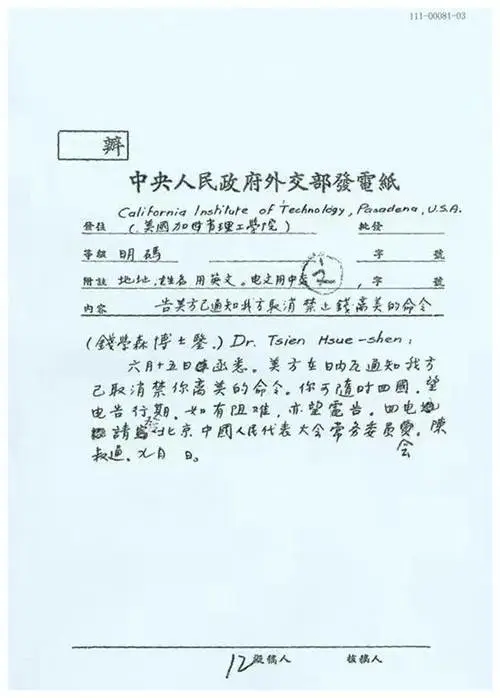 111-00081-03
辦
中央人民政府外交部發電紙
California Institute of Technology, Pasadena, U.S.A.
發往 (美國加州理工學院) 批發
等級 明碼 字 號
附註 地址、姓名用英文。电文用中文 字 號
內容 告美方已通知我方取消禁止錢離美的命令
(錢學森博士鑒) Dr. Tsien Hsue-shen:
六月十五日函悉。美方在日內瓦通知我方
已取消禁你离美的命令。你可随时回國,望
电告行期,如有阻难,亦望電告。回电
請 北京中國人民代表大会常务委员会,陳
叔通,九月 日。
12 擬稿人 核稿人